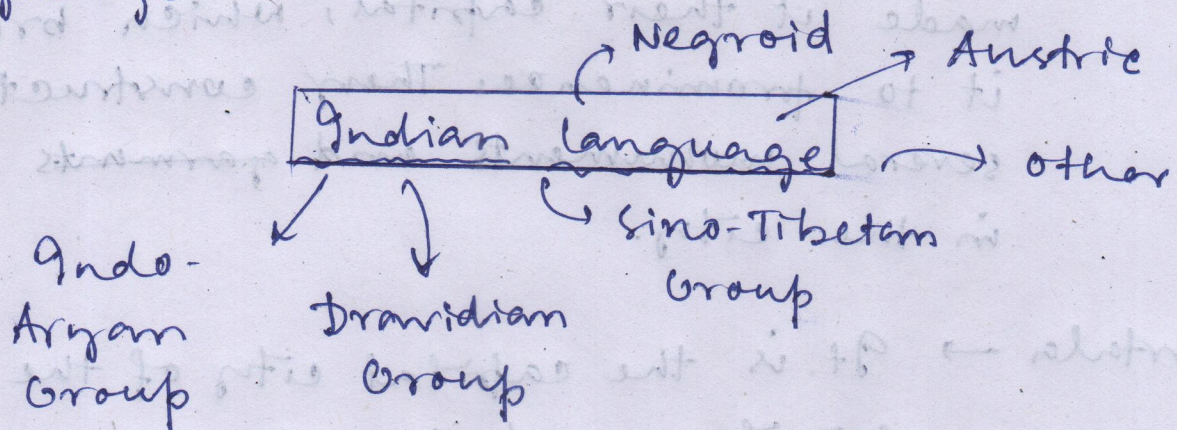 Negroid
Austric
Indian language
Other
Sino-Tibetan
Group
Indo-
Aryan
Group
Dravidian
Group